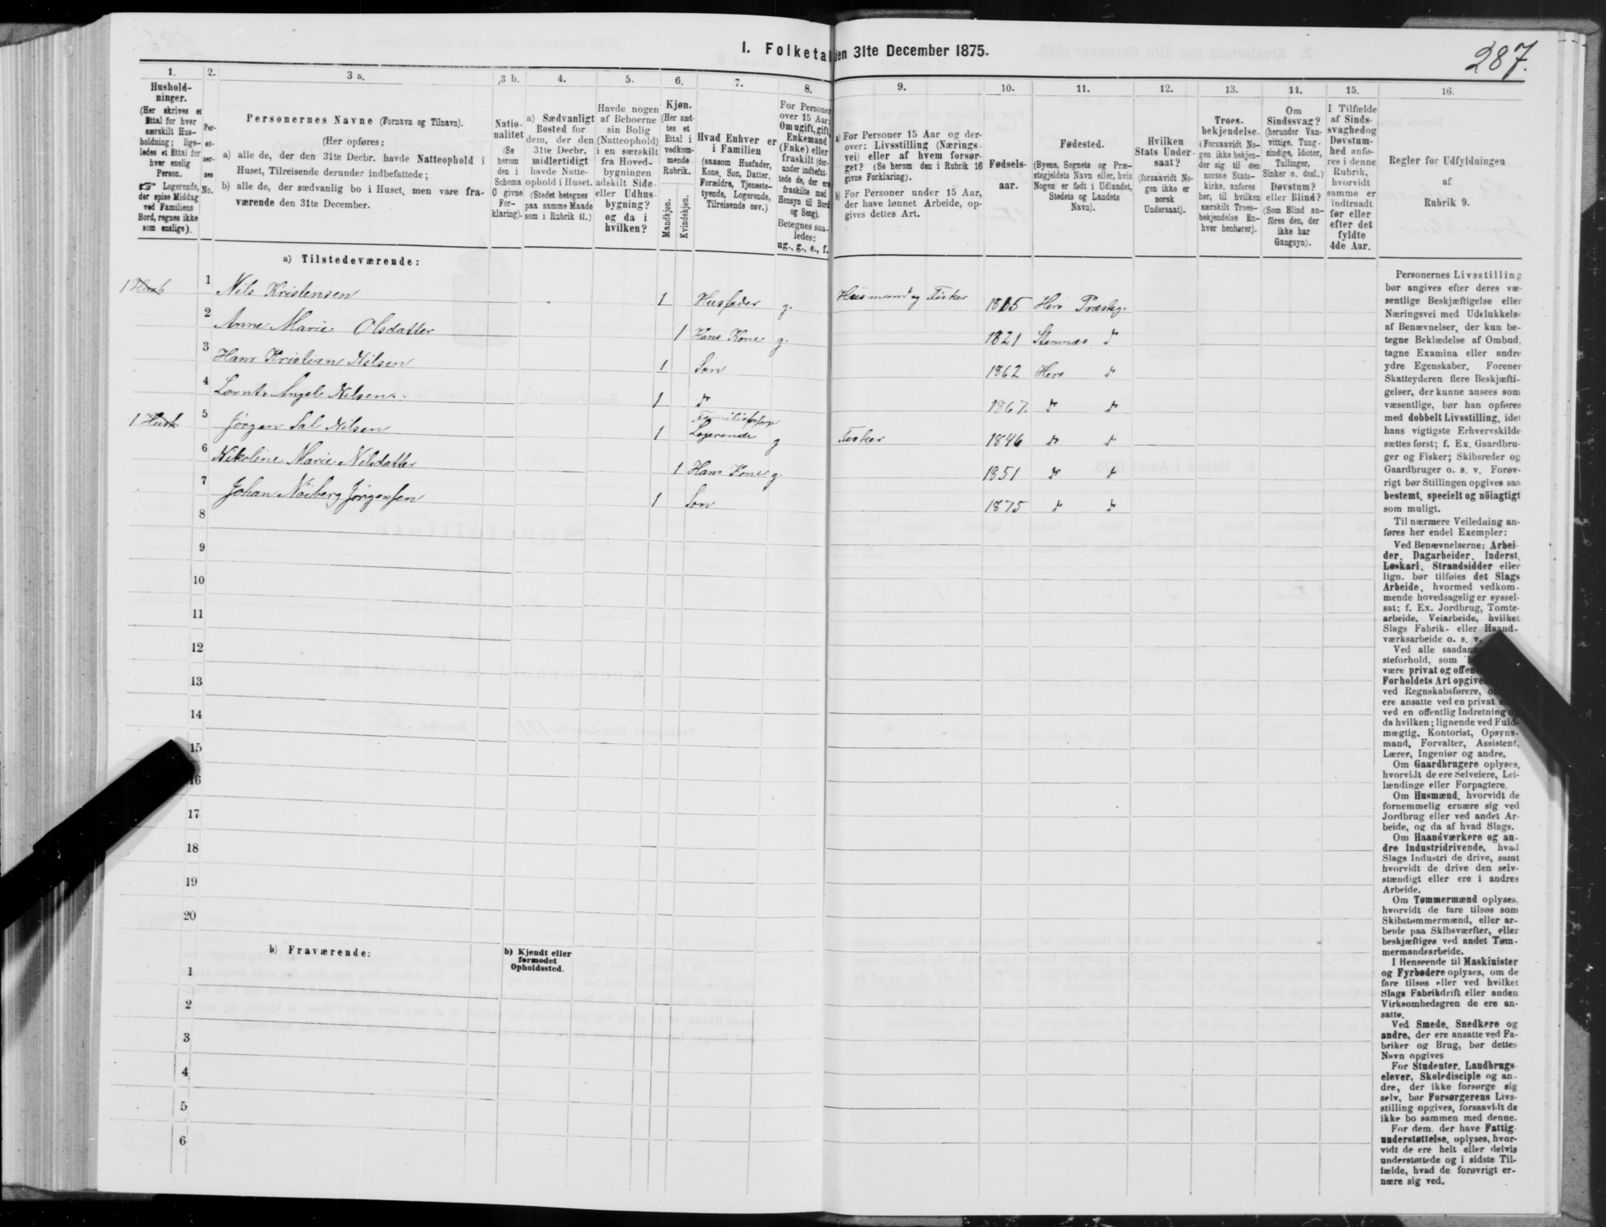 I. Folketal den 31te December 1875.
287.
1.
Hushold-
ninger.
(Her skrives et
Ettal for hver
særskilt Hus-
holdning; lige-
ledes et Ettal for
hver enslig
Person.
☞ Logerende,
der spise Middag
ved Familiens
Bord, regnes ikke
som enslige).
2.
Per-
so-
ner-
nes
No.
3 a.
Personernes Navne (Fornavn og Tilnavn).
(Her opføres:
a) alle de, der den 31te Decbr. havde Natteophold i
Huset, Tilreisende derunder indbefattede;
b) alle de, der sædvanlig bo i Huset, men vare fra-
værende den 31te December.
3 b.
Natio-
nalitet
(Se
herom
den i
Schema
O givne
For-
klaring).
4.
a) Sædvanligt
Bosted for
dem, der den
31te Decbr.
midlertidigt
havde Natte-
ophold i Huset.
(Stedet betegnes
paa samme Maade
som i Rubrik 11.)
5.
Havde nogen
af Beboerne
sin Bolig
(Natteophold)
i en særskilt
fra Hoved-
bygningen
adskilt Side-
eller Udhus-
bygning?
og da i
hvilken?
6.
Kjøn.
(Her sæt-
tes et
Ettal i
vedkom-
mende
Rubrik.
Mandkjøn.
Kvindekjøn.
7.
Hvad Enhver er
i Familien
(saasom Husfader,
Kone, Søn, Datter,
Forældre, Tjeneste-
tyende, Logerende,
Tilreisende osv.)
8.
For Personer
over 15 Aar:
Om ugift, gift,
Enkemand
(Enke) eller
fraskilt (der-
under indbefat-
tede de, der ere
fraskilte med
Hensyn til Bord
og Seng).
Betegnes saa-
ledes:
ug., g., e., f.
9.
a) For Personer 15 Aar og der-
over: Livsstilling (Nærings-
vei) eller af hvem forsør-
get? (Se herom den i Rubrik 16
givne Forklaring).
b) For Personer under 15 Aar,
der have lønnet Arbeide, op-
gives dettes Art.
10.
Fødsels-
aar.
11.
Fødested.
(Byens, Sognets og Præ-
stegjeldets Navn eller, hvis
Nogen er født i Udlandet,
Stedets og Landets
Navn).
12.
Hvilken
Stats Under-
saat?
(forsaavidt No-
gen ikke er
norsk
Undersaat).
13.
Troes-
bekjendelse.
(Forsaavidt No-
gen ikke bekjen-
der sig til den
norske Stats-
kirke, anføres
her, til hvilken
særskilt Troes-
bekjendelse En-
hver henhører).
14.
Om
Sindssvag?
(herunder Van-
vittige, Tung-
sindige, Idioter,
Tullinger,
Sinker o. desl.)
Døvstum?
eller Blind?
(Som Blind an-
føres den, der
ikke har
Gangsyn).
15.
I Tilfælde
af Sinds-
svaghed og
Døvstum-
hed anfø-
res i denne
Rubrik,
hvorvidt
samme er
indtraadt
før eller
efter det
fyldte
4de Aar.
16.
Regler før Udfyldningen
af
Rubrik 9.
a) Tilstedeværende:
1 Husb 1 Nils Kristensen 1 Husfader g. Husmand og Fisker 1815 Herø Præsteg.
2 Anne Marie Olsdatter 1 Hans Kone g. 1821 Stamnæs do
3 Hans Kristian Nilsen 1 Søn 1862 Herø do
4 Lorents Angel Nilsen 1 do 1867 do do
1 Husb 5 Jørgen Sal Nilsen 1 Logerende g Fisker 1846 do do
6 Nikoline Marie Nilsdatter 1 Hans Kone g. 1851 do do
7 Johan Noiberg Jørgensen 1 Søn 1875 do do
8
9
10
11
12
13
14
15
16
17
18
19
20
b) Fraværende:
b) Kjendt eller
formodet
Opholdssted.
1
2
3
4
5
6
Personernes Livsstilling
bør angives efter deres væ-
sentlige Beskjæftigelse eller
Næringsvei med Udelukkelse
af Benævnelser, der kun be-
tegne Beklædelse af Ombud,
tagne Examina eller andre
ydre Egenskaber. Forener
Skatteyderen flere Beskjæfti-
gelser, der kunne ansees som
væsentlige, bør han opføres
med dobbelt Livsstilling, idet
hans vigtigste Erhvervskilde
sættes først; f. Ex. Gaardbru-
ger og Fisker; Skibsreder og
Gaardbruger o. s. v. Forøv-
rigt bør Stillingen opgives saa
bestemt, specielt og nöiagtigt
som muligt.
Til nærmere Veiledning an-
føres her endel Exempler:
Ved Benævnelserne: Arbei-
der, Dagarbeider, Inderst,
Løskarl, Strandsidder eller
lign. bør tilføies det Slags
Arbeide, hvormed vedkom-
mende hovedsagelig er syssel-
sat; f. Ex. Jordbrug, Tomte-
arbeide, Veiarbeide, hvilket
Slags Fabrik- eller Haand-
værksarbeide o. s. v.
Ved alle saadan
steforhold, som
være privat og offen
Forholdets Art opgive
ved Regnskabsførere,
ere ansatte ved en privat
ved en offentlig Indretning
da hvilken; lignende ved Fuld-
mægtig, Kontorist, Opsyns-
mand, Forvalter, Assistent,
Lærer, Ingeniør og andre.
Om Gaardbrugere oplyses,
hvorvidt de ere Selveiere, Lei-
lændinge eller Forpagtere.
Om Husmænd, hvorvidt de
fornemmelig ernære sig ved
Jordbrug eller ved andet Ar-
beide, og da af hvad Slags.
Om Haandværkere og an-
dre Industridrivende, hvad
Slags Industri de drive, samt
hvorvidt de drive den selv-
stændigt eller ere i andres
Arbeide.
Om Tømmermænd oplyses,
hvorvidt de fare tilsøs som
Skibstømmermænd, eller ar-
beide paa Skibsværfter, eller
beskjæftiges ved andet Tøm-
mermandsarbeide.
I Henseende til Maskinister
og Fyrbødere oplyses, om de
fare tilsøs eller ved hvilket
Slags Fabrikdrift eller anden
Virksomhedsgren de ere an-
satte.
Ved Smede, Snedkere og
andre, der ere ansatte ved Fa-
briker og Brug, bør dettes
Navn opgives
For Studenter, Landbrugs-
elever, Skoledisciple og an-
dre, der ikke forsørge sig
selv, bør Forsørgerens Livs-
stilling opgives, forsaavidt de
ikke bo sammen med denne.
For dem, der have Fattig-
understøttelse, oplyses, hvor-
vidt de ere helt eller delvis
understøttede og i sidste Til-
fælde, hvad de forøvrigt er-
nære sig ved.